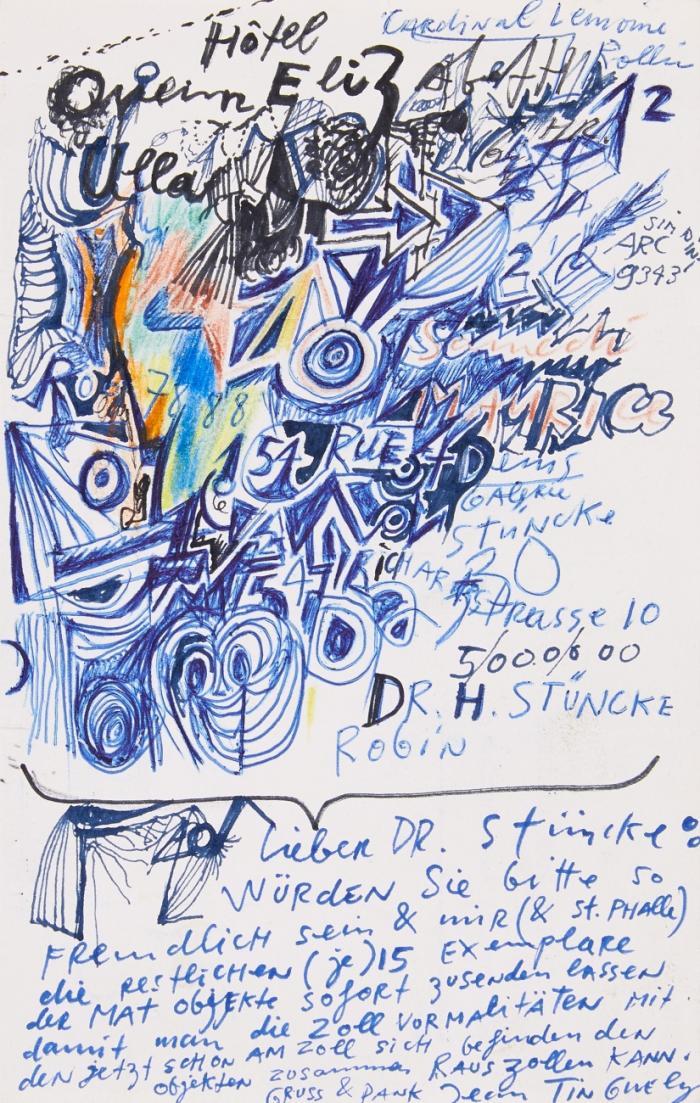 Cardinal Lemoine
Rollin
Hôtel
Queen Elizabeth
Ulla
12
ARC
9343
2
Samedi
MAURICE
7888
51 RUE
Galerie
STÜNCKE
RICHARTZ
Strasse 10
5/000/000
DR. H. STÜNCKE
ROBIN
lieber DR. Stüncke:
WÜRDEN Sie bitte so
FReundlicH sein & mir (& St. PHAlle)
die RestlicHen (je) 15 EXemplaRe
der MAT Objekte sofort zusenden lassen
damit man die Zoll VoRMalitäten mit
den jetzt scHon AM Zoll sich befinden den
objekten zusammen RAUSzollen KANN.
GRUSS & DANK Jean TinGuely